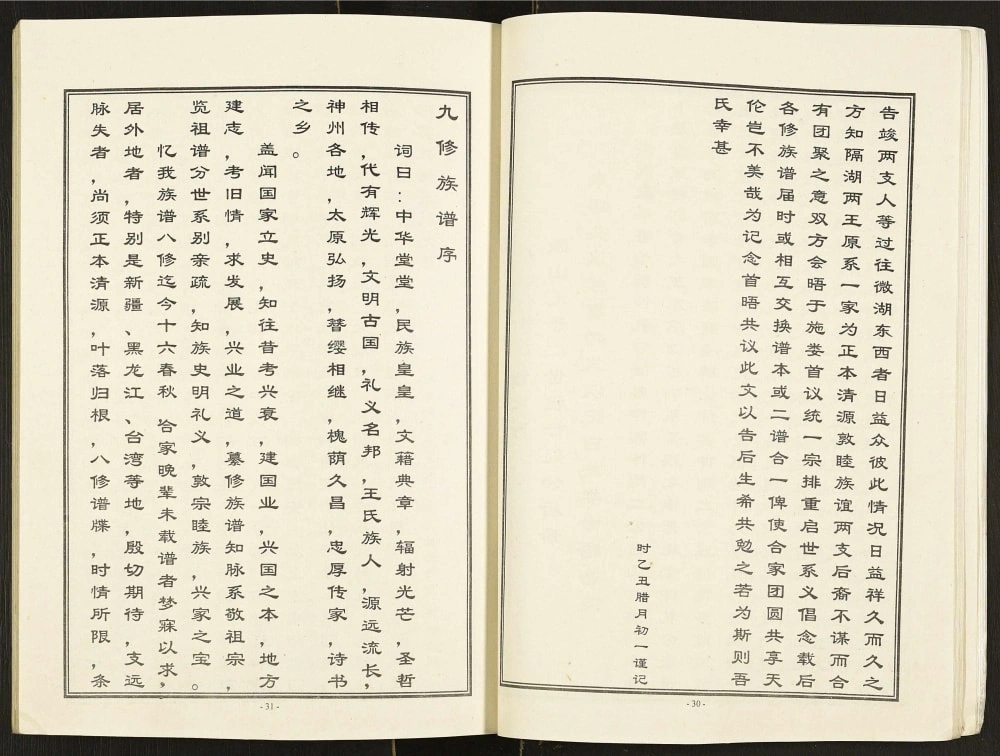 告竣两支人等过往微湖东西者日益众彼此情况日益祥久而久之
方知隔湖两王原系一家为正本清源敦睦族谊两支后裔不谋而合
有团聚之意双方会晤于施娄首议统一宗排重启世系义倡念载后
各修族谱届时或相互交换谱本或二谱合一俾使合家团圆共享天
伦岂不美哉为记念首晤共议此文以告后生希共勉之若为斯则吾
氏幸甚
时乙丑腊月初一谨记
-30-
九修族谱序
词曰:中华堂堂,民族皇皇,文籍典章,辐射光芒,圣哲
相传,代有辉光,文明古国,礼义名邦,王氏族人,源远流长,
神州各地,太原弘扬,簪缨相继,槐荫久昌,忠厚传家,诗书
之乡。
盖闻国家立史,知往昔考兴衰,建国业,兴国之本,地方
建志,考旧情,求发展,兴业之道,纂修族谱知脉系敬祖宗,
览祖谱分世系别亲疏,知族史明礼义,敦宗睦族,兴家之宝。
忆我族谱八修迄今十六春秋 合家晚辈未载谱者梦寐以求,
居外地者,特别是新疆、黑龙江、台湾等地,殷切期待,支远
脉失者,尚须正本清源,叶落归根,八修谱牒,时情所限,条
-31-